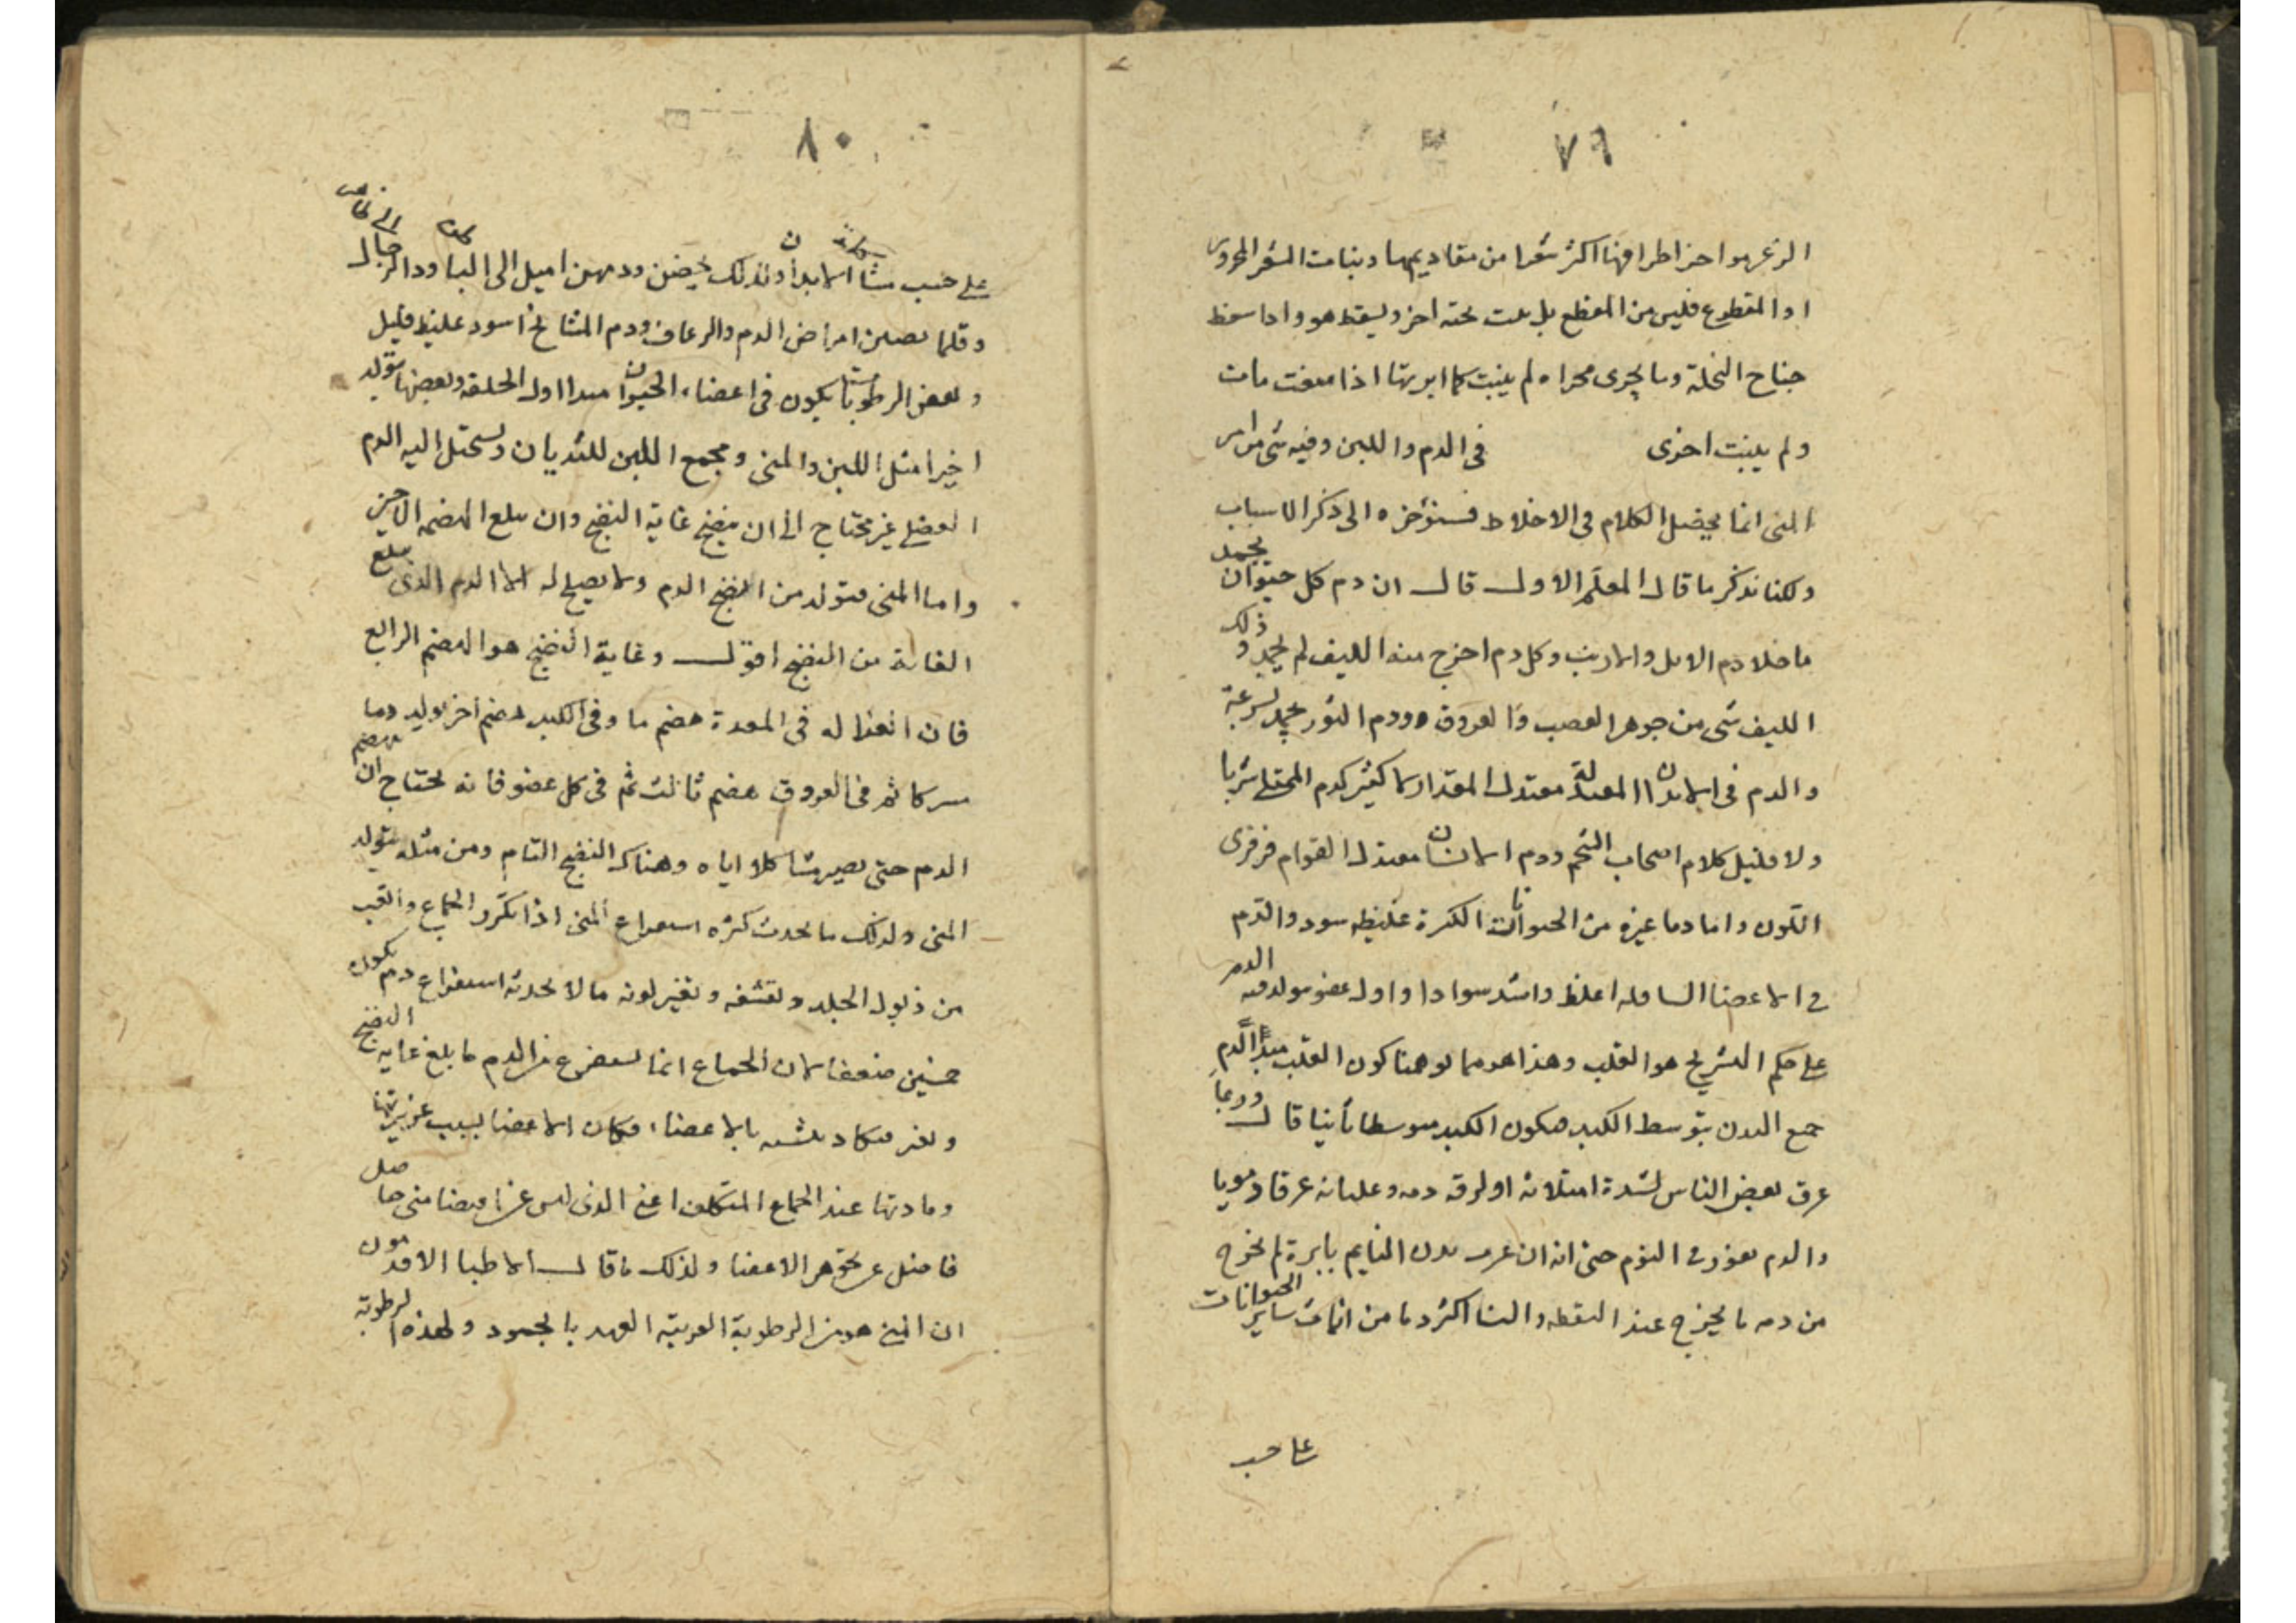 ٧٩
الزغر هو احد اطرافها اكثر شعرا من مقاديمها ونبات الشعر المحروق
او المقطوع فليس من المقطع بل ينبت تحته اخر ويسقط هو واذا سقط
جناح النحلة وما يجرى مجراه لم ينبت كما ابرتها اذا سقطت ماتت
ولم ينبت اخرى في الدم واللبن وفيه شى من امر
المنى انما يحصل الكلام في الاخلاط فسنؤخره الى ذكر الاسباب
ولكنا نذكر ما قال المعلم الاول قال ان دم كل حيوان يجمد
ما خلا دم الايل والارنب وكل دم اخرج منه الليف لم يجمد وذلك
الليف شى من جوهر العصب والعروق ودم الثور يجمد بسرعة
والدم فى الابدان المعتدلة معتدل المقدار لا كثير كدم الممتلى شربا
ولا قليل كلام اصحاب الشحم ودم الانسان معتدل القوام فرفرى
اللون واما دما غيره من الحيوانات الكثيرة غليظه سود والدم
في الاعضا السافله اغلظ واشد سوادا واول عضو يتولد فيه الدم
على حكم التشريح هو القلب وهذا هو مما يوهنا كون القلب مبدأ الدم
جمع البدن بتوسط الكبد فيكون الكبد متوسطا ثانيا قال وربما
عرق بعض الناس لشدة امتلائه او لرقه دمه وغليانه عرقا دمويا
والدم يغور في النوم حتى انه ان غرز بدن النايم بابرة لم يخرج
من دمه ما يخرج عند اليقظه والنسا اكثر دما من اناث ساير الحيوانات
على حسب
٨٠
على حسب مشاكلة الابدان ولذلك يحضن ودمهن اميل الى الباطن ودم الرجال الى الظاهر
وقلما يصيبهن امراض الدم والرعاف ودم المشايخ اسود غليظ قليل
وبعض الرطوبات يكون فى اعضاء الحيوان مبدا اول الخلقه وبعضها يتولد
اخيرا مثل اللبن والمنى ومجمع اللبن للثديان ويستحيل اليه الدم
الفضلى غير محتاج الى ان ينضج غاية النضج وان يبلغ الهضم الاخير
واما المنى فيتولد من انضج الدم ولا يصلح له الا الدم الذى يبلغ
الغاية من النضج اقول وغاية النضج هو الهضم الرابع
فان الغذا له فى المعدة هضم ما وفى الكبد هضم اخر يولد دما
مشتركا ثم فى العروق هضم ثالث ثم فى كل عضو فانه يحتاج ان يهضم
الدم حتى يصير مشاكلا اياه وهناك النضج التام ومن مثله يتولد
المنى ولذلك ما يحدث كثره استفراغ المنى اذا تكرر الجماع والتعب
من ذبول الجلد وتقشفه وتغير لونه ما لا يحدثه استفراغ دم يكون
خمسين ضعفا لان الجماع انما يستفرغ من الدم ما بلغ غايه النضج
وتغير فكاد يتشبه بالاعضاء فكان الاعضا بسبب غزيرتها
ومادتها عند الجماع المتكلف اعنى الذى ليس عن امتصاص منى حاصل
فاضل عن تجوهر الاعضا ولذلك ما قال الاطبا الاقدمون
ان المنى هو من الرطوبة القريبة العهد بالجمود ولهذه الرطوبة